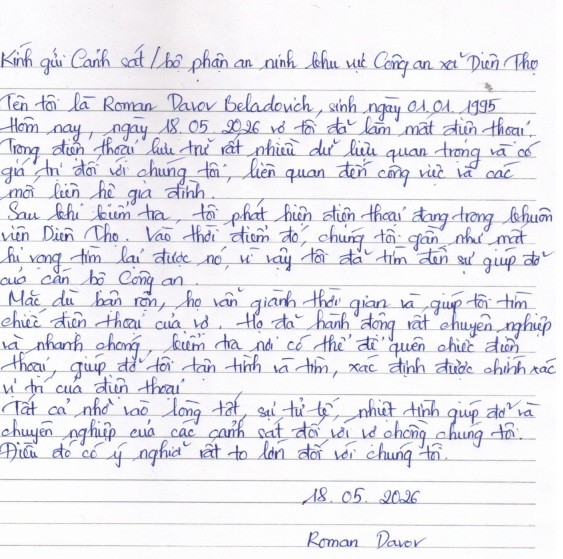 Kính gửi Cảnh sát / bộ phận an ninh khu vực Công an xã Diên Thọ
Tên tôi là Roman Davov Beladovich, sinh ngày 01.01.1995
Hôm nay, ngày 18.05.2026 vợ tôi đã làm mất điện thoại.
Trong điện thoại lưu trữ rất nhiều dữ liệu quan trọng và có
giá trị đối với chúng tôi, liên quan đến công việc và các
mối liên hệ gia đình.
Sau khi kiểm tra, tôi phát hiện điện thoại đang trong khuôn
viên Diên Thọ. Vào thời điểm đó, chúng tôi gần như mất
hi vọng tìm lại được nó, vì vậy tôi đã tìm đến sự giúp đỡ
của cán bộ Công an.
Mặc dù bận rộn, họ vẫn giành thời gian và giúp tôi tìm
chiếc điện thoại của vợ. Họ đã hành động rất chuyên nghiệp
và nhanh chóng, kiểm tra nơi có thể để quên chiếc điện
thoại, giúp đỡ tôi tận tình và tìm, xác định được chính xác
vị trí của điện thoại
Tất cả nhờ vào lòng tốt, sự tử tế, nhiệt tình giúp đỡ và
chuyên nghiệp của các cảnh sát đối với vợ chồng chúng tôi.
Điều đó có ý nghĩa rất to lớn đối với chúng tôi.
18.05.2026
Roman Davov